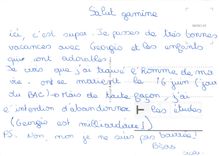 Salut gamine
ici, c'est super. Je passe de très bonnes
vacances avec Georgio et les enfants
qui sont adorables!
Je crois que j'ai trouvé l'homme de ma
vie. on se marierait le 16 juin (jour
du BAC). Mais de toute façon, j'ai
l'intention d'abandonner les études
(Georgio est milliardaire!)
PS. Non, mon je ne suis pas bourrée!
Bises